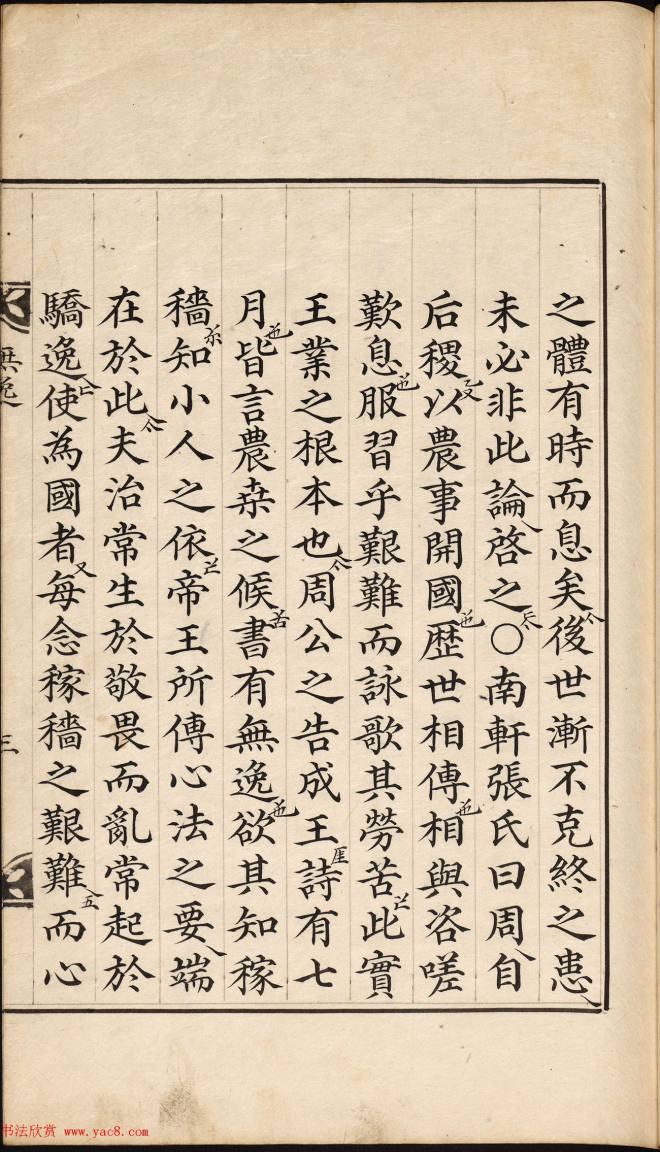 之體有時而息矣後世漸不克終之患
未必非此論啓之〇南軒張氏曰周自
后稷以農事開國歴世相傳相與咨嗟
歎息服習乎艱難而詠歌其勞苦此實
王業之根本也周公之告成王詩有七
月皆言農桒之候書有無逸欲其知稼
穡知小人之依帝王所傳心法之要端
在於此夫治常生於敬畏而亂常起於
驕逸使為國者每念稼穡之艱難而心
無逸
三
书法欣赏 www.yac8.com